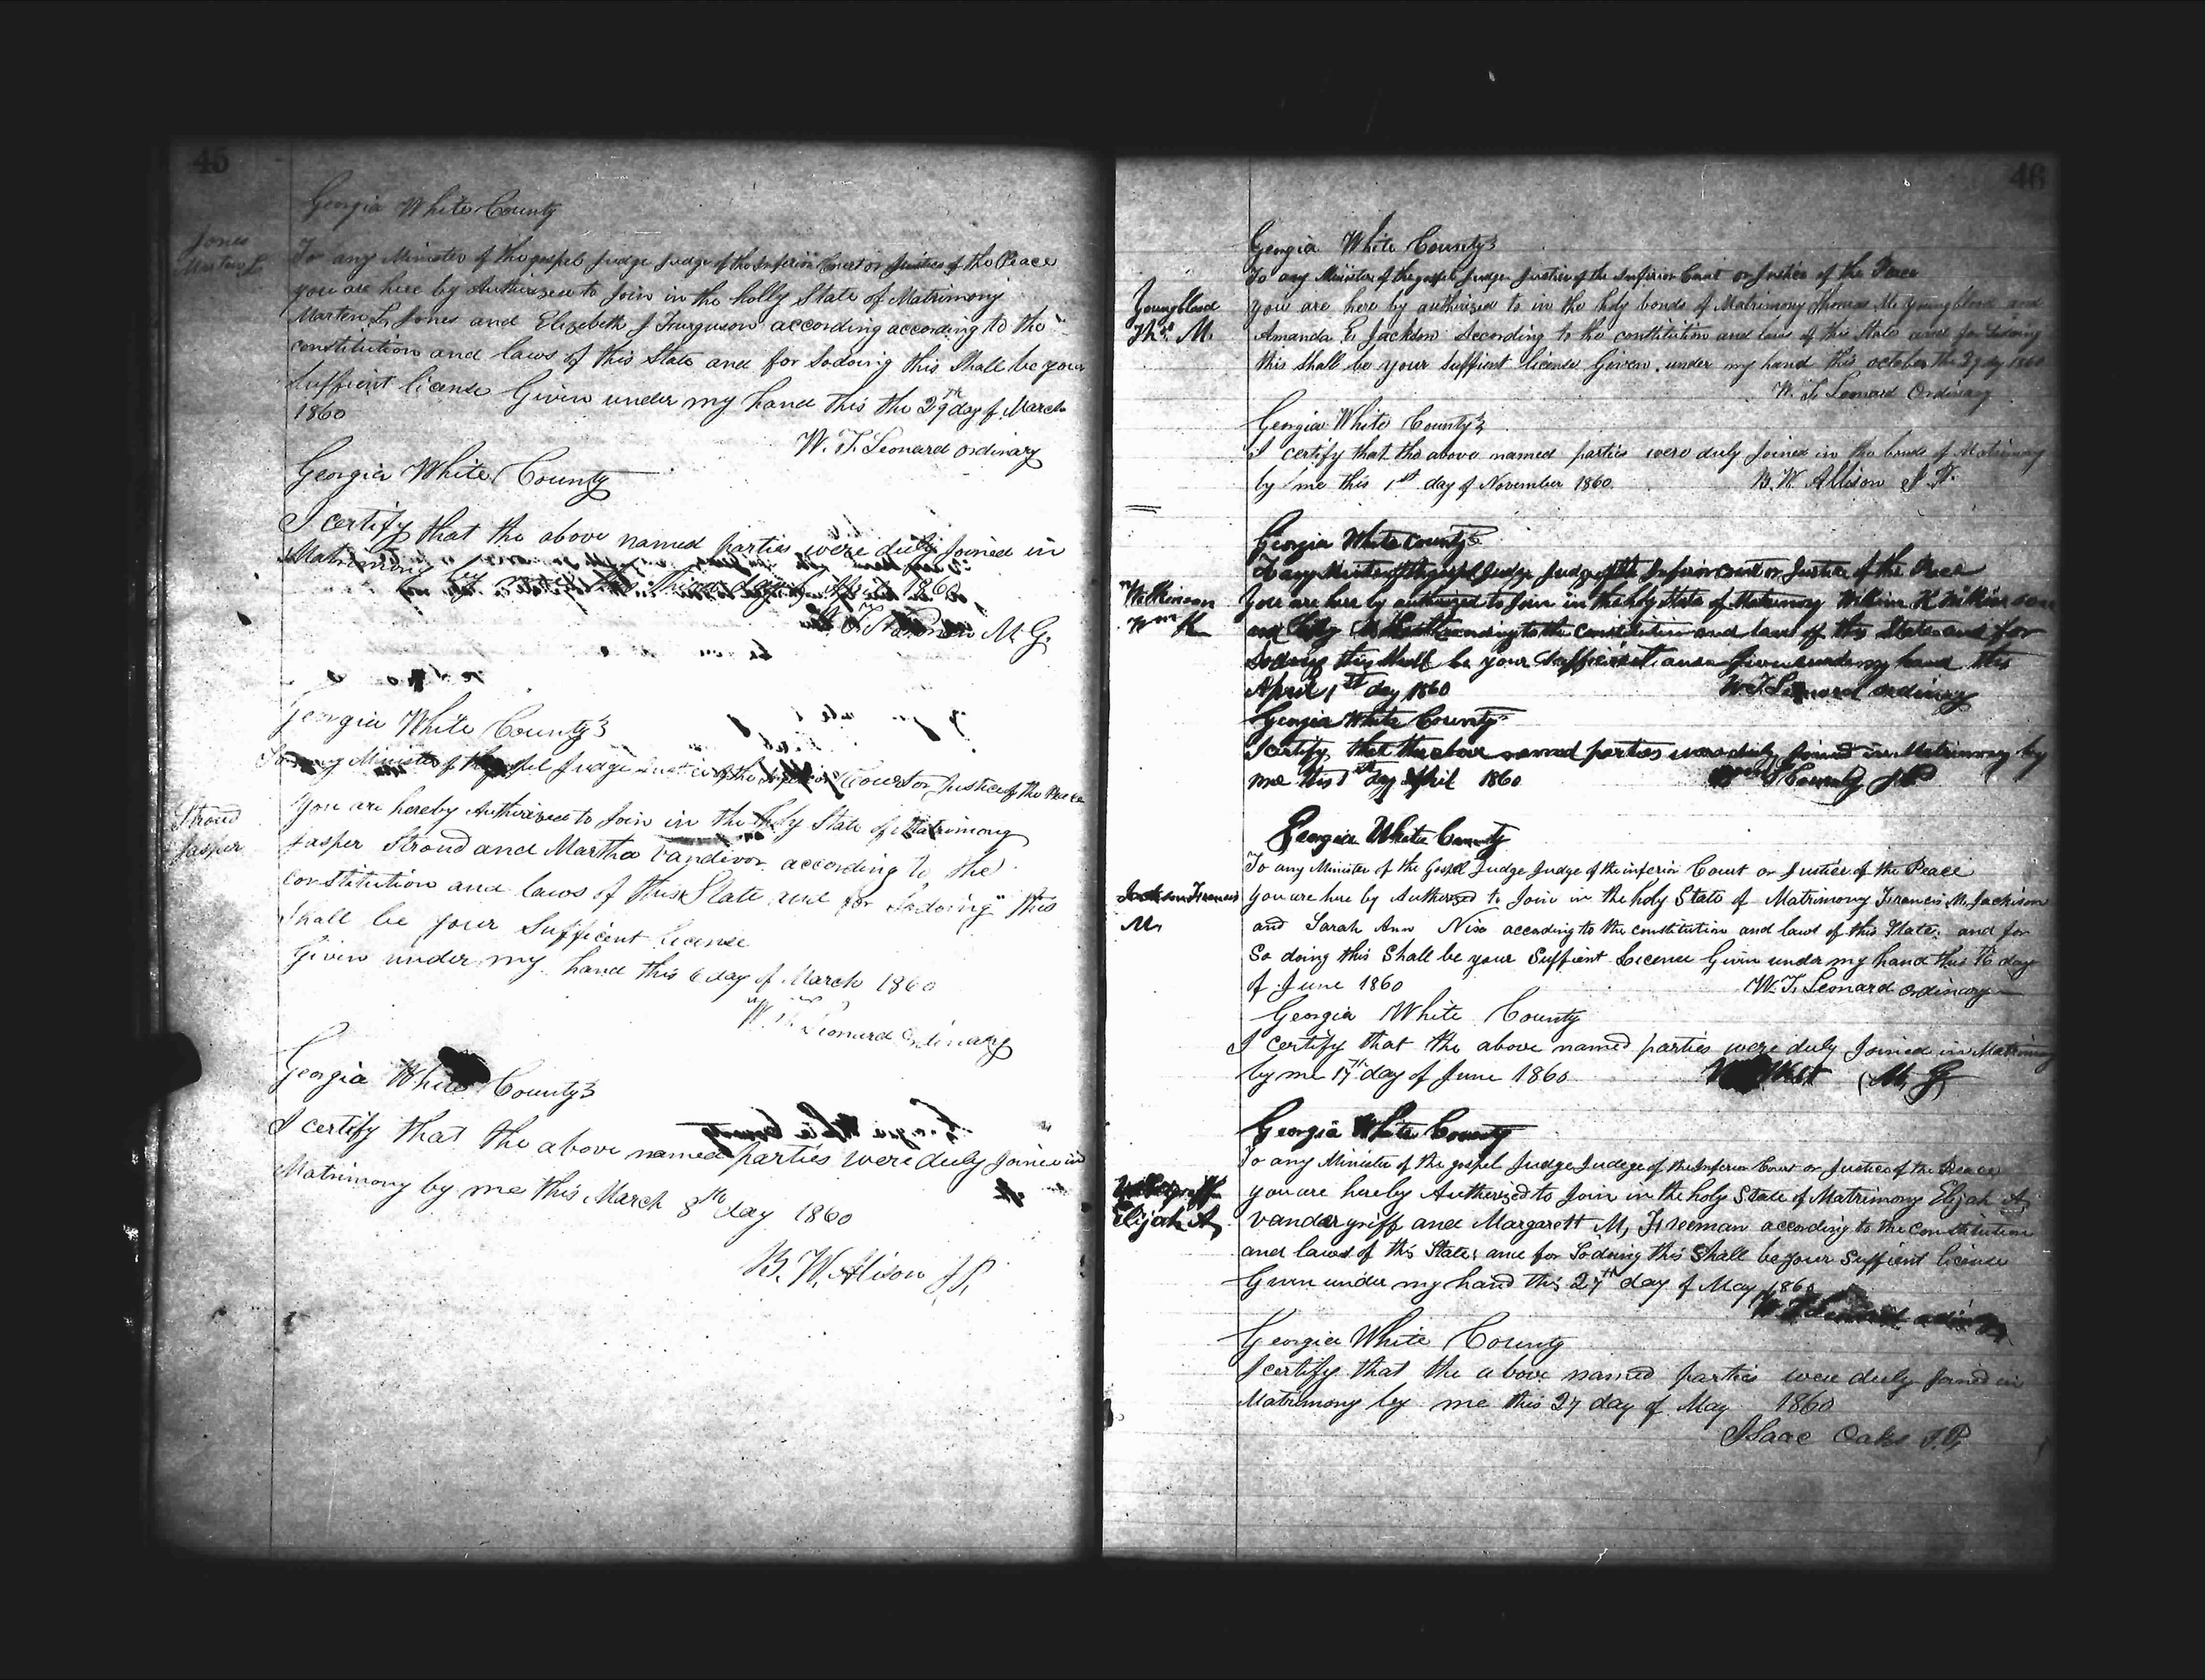 45
Georgia White County
Jones
Marten L
To any Minister of the gospel Judge Judge of the Inferior Court or Justice of the Peace
you are here by Authorized to Join in the holly State of Matrimony
Marten L. Jones and Elizebeth J Furguson according according to the
constitution and laws of this State and for Sodoing this Shall be your
Suffient license Given under my hand this the 29th day of March
1860
W. T. Leonard ordinary
Georgia White County
I certify that the above named parties were duly Joined in
Matrimony by
1860
M. G.
Georgia White County
To any Minister of the gospel Judge Justice of the Inferior Court or Justice of the Peace
Stroud
Jasper
You are hereby Authorized to Join in the Holy State of Matrimony
Jasper Stroud and Martha Vandivor according to the
constitution and laws of this State and for Sodoing this
Shall be your Sufficent license
Given under my hand this 6 day of March 1860
W. T. Leonard Ordinary
Georgia White County
I certify that the above named parties were duly Joined in
Matrimony by me this March 8th day 1860
B. W. Alison J. P.
46
Georgia White County
To any Minister of the gospel Judge Justice of the Inferior Court or Justice of the Peace
Youngblood
Thos. M.
you are here by authorized to in the holy bonds of Matrimony Thomas M. Youngblood and
Amanda E. Jackson According to the constitution and laws of this State and for Sodoing
this shall be your Suffient license Given under my hand this october the 29 day 1860
W. T. Leonard Ordinary
Georgia White County
I certify that the above named parties were duly Joined in the bonds of Matrimony
by me this 1st day of November 1860.
B. W. Allison J. P.
Georgia White County
To any Minister of the gospel Judge Judge of the Inferior Court or Justice of the Peace
Wilkinson
Wm K
You are here by authorized to Join in the holy State of Matrimony
and according to the Constitution and laws of this State and for
Sodoing this Shall be your Given under my hand this
April 1st day 1860
W. T. Leonard ordinary
Georgia White County
I certify that the above named parties were duly Joined in Matrimony by
me this 1st day April 1860
J. P.
Georgia White County
To any Minister of the Gospel Judge Judge of the inferior Court or Justice of the Peace
Jackson Francis
M.
you are here by Authorized to Join in the holy State of Matrimony Francis M. Jackison
and Sarah Ann Nix according to the constitution and laws of this State. and for
So doing this Shall be your Suffient Licence Given under my hand this 16 day
of June 1860
W. T. Leonard ordinary
Georgia White County
I certify that the above named parties were duly Joined in Matrimony
by me 17th day of June 1860
West (M. G)
Georgia White County
To any Minister of the gospel Judge Judege of the Inferior Court or Justice of the Peace
Elijah A,
you are hereby Authorized to Join in the holy State of Matrimony Elijah A,
Vandergriff and Margarett M, Freeman according to the Constitution
and laws of this State and for Sodoing this Shall be your Suffient license
Given under my hand this 27th day of May 1860
W. T. Leonard ordinary
Georgia White County
I certify that the above named parties were duly Joined in
Matrimony by me this 27 day of May 1860
Isaac Oaks J. P.